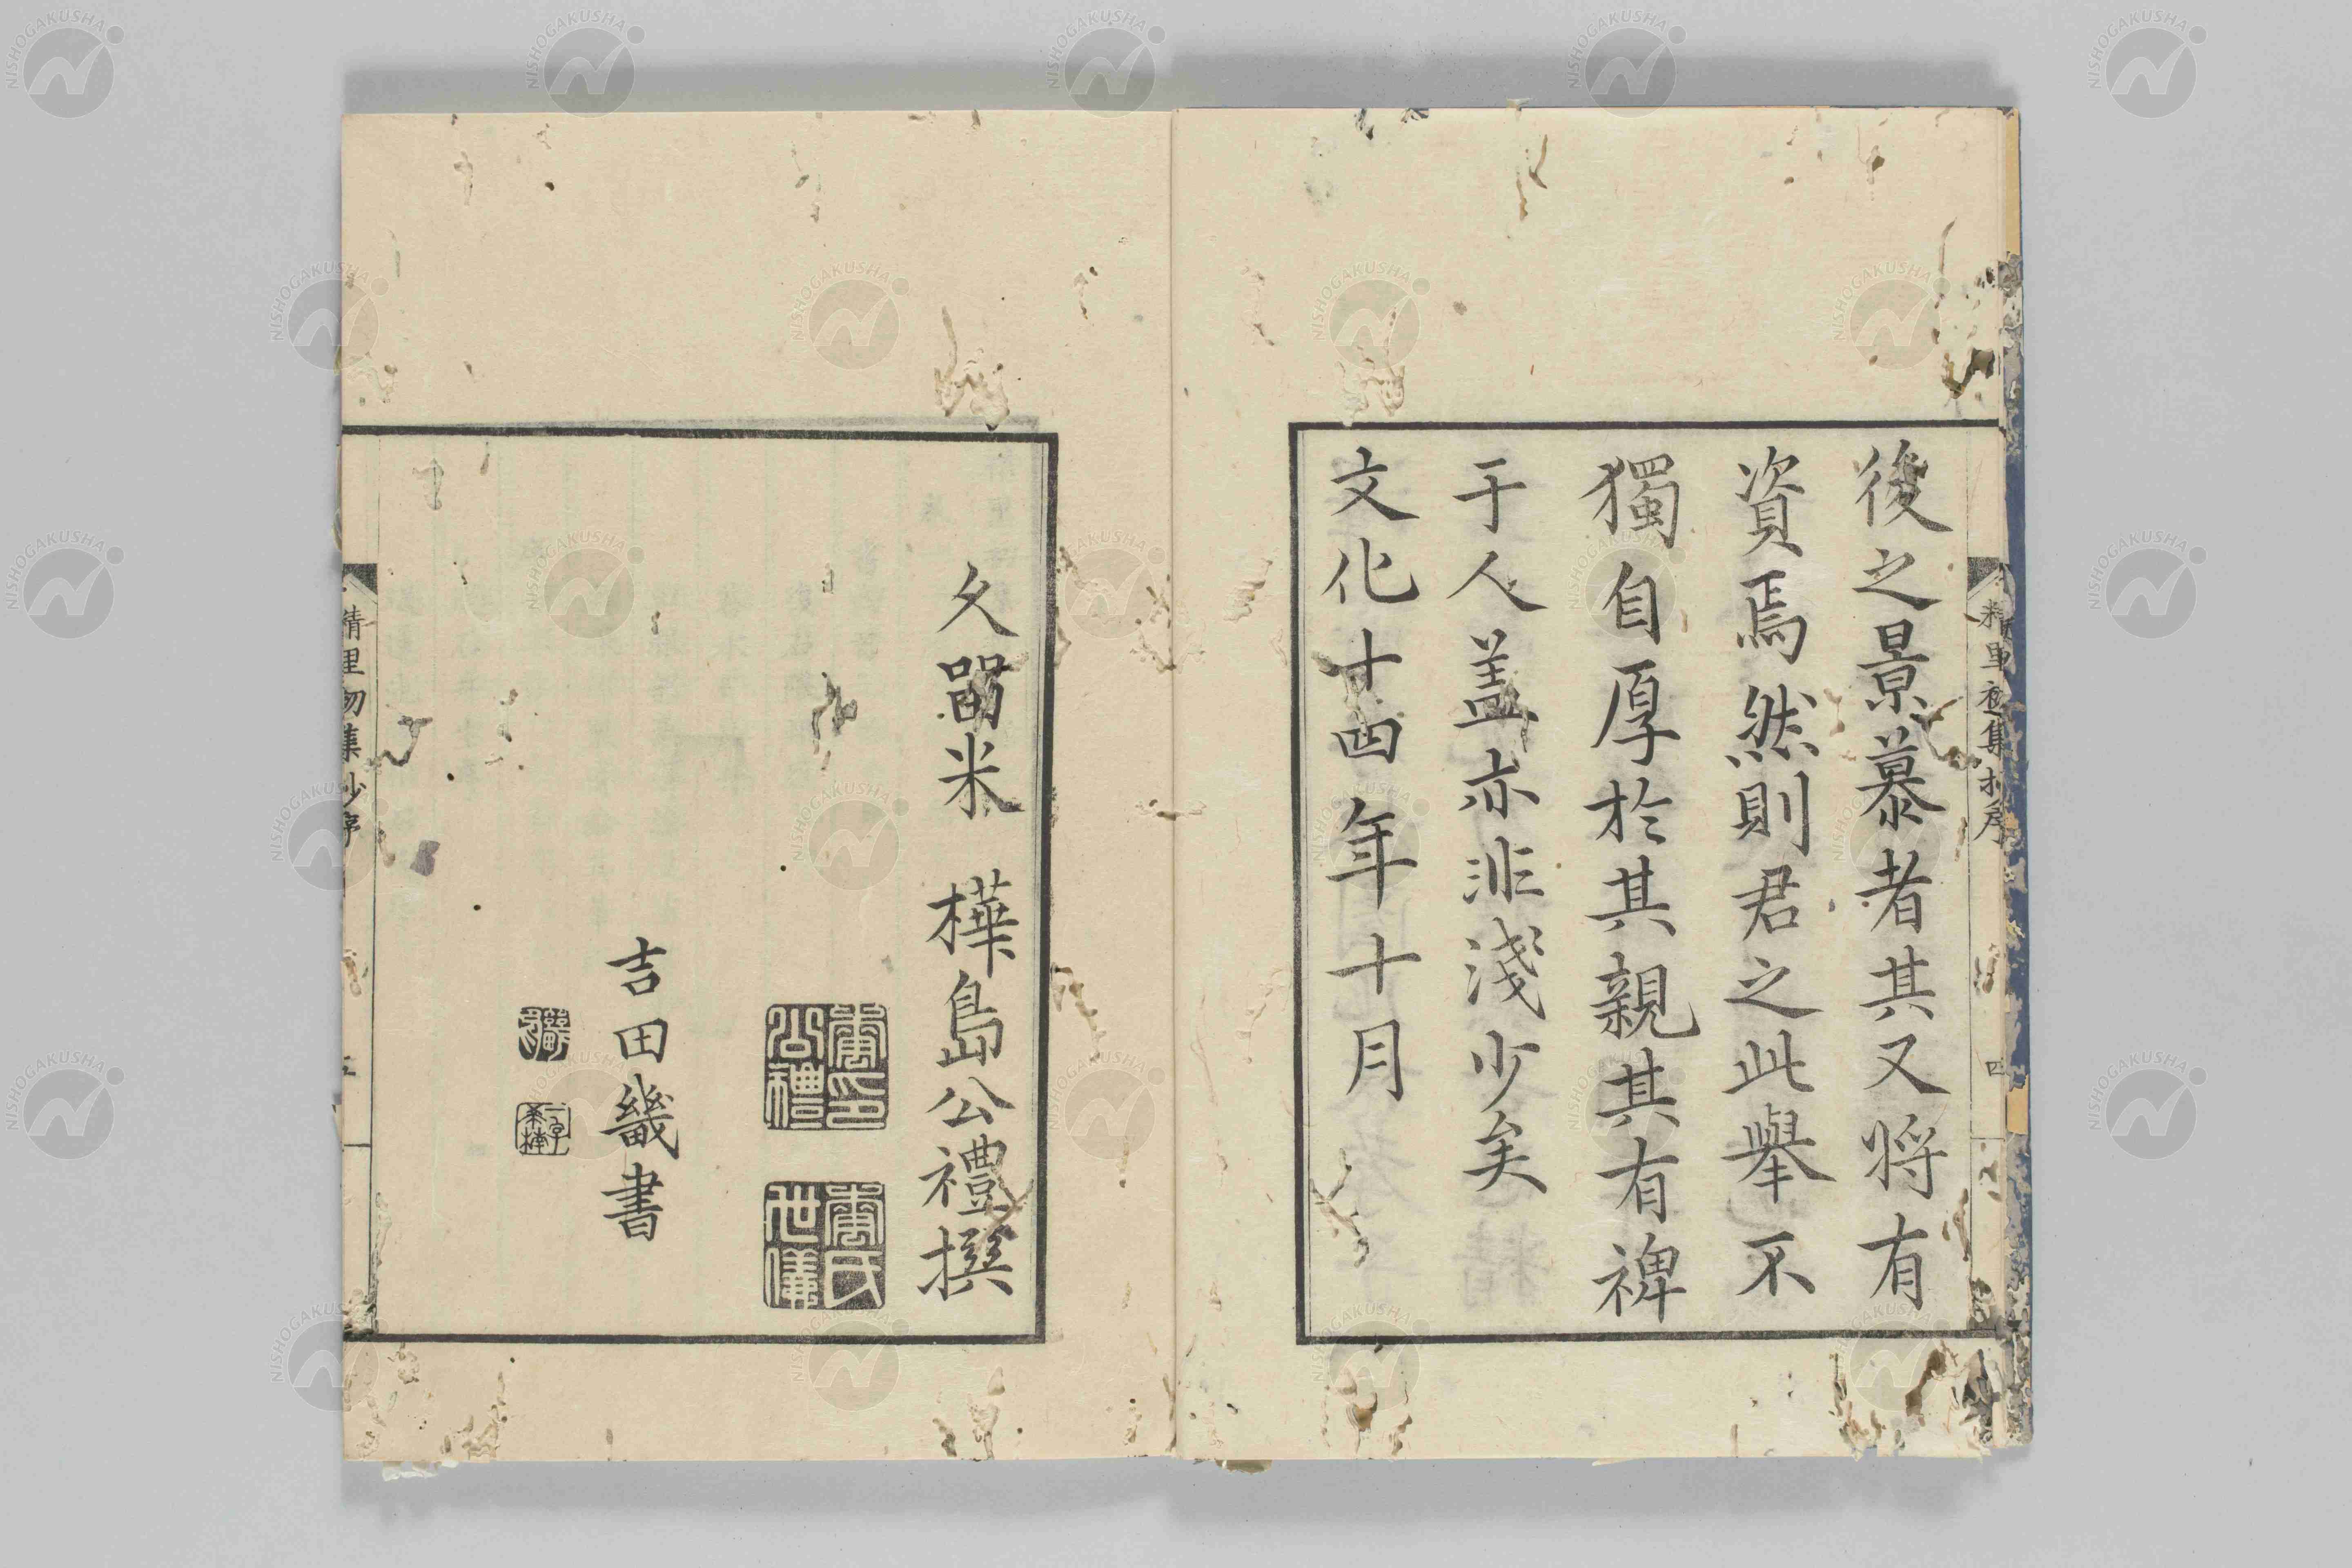 後之景慕者其又将有
資焉然則君之此舉不
獨自厚於其親其有裨
于人盖亦非淺少矣
文化十四年十月
久留米 樺島公禮撰
吉田畿書
精里初集抄序
四
五
NISHOGAKUSHA